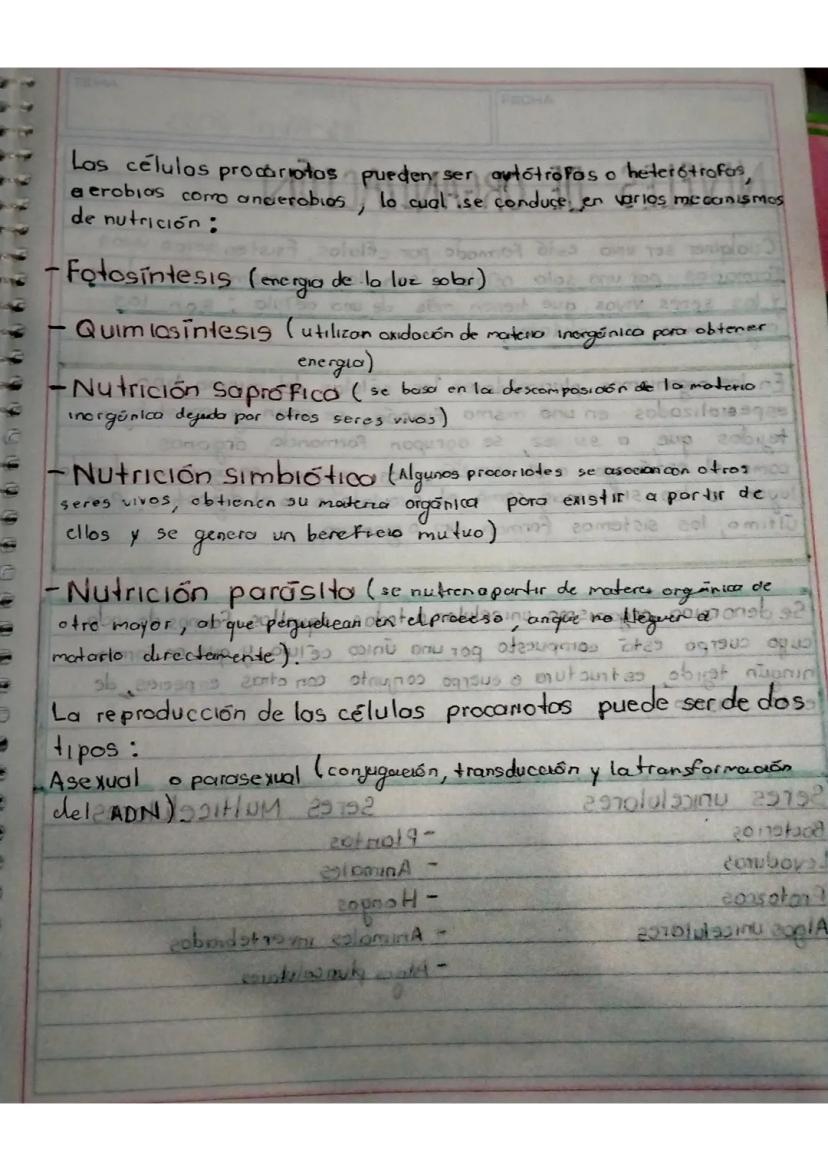 TEMA
FECHA
Las células procariotas pueden ser autótrofas o heterótrofas,
aerobias como anaerobios, lo cual se conduce en varios mecanismos
de nutrición:
- Fotosíntesis (energia de la luz solar)
- Quimiosíntesis (utilizan oxidación de materia inorgánica para obtener
energia)
- Nutrición Saprófica (se basa en la descomposición de la materia
inorgánica dejada por otros seres vivos)
- Nutrición simbiótica (Algunos procariotes se asocian con otros
seres vivos, obtienen su materia orgánica para existir a partir de
ellos y se genera un beneficio mutuo)
- Nutrición parásita (se nutren a partir de orgánica de
otro mayor, al que en el proceso, no lleguen a
matarlo directamente).
La reproducción de las células procariotas puede ser de dos
tipos:
Asexual o parasexual (conjugación, transducción y la transformación
del ADN)